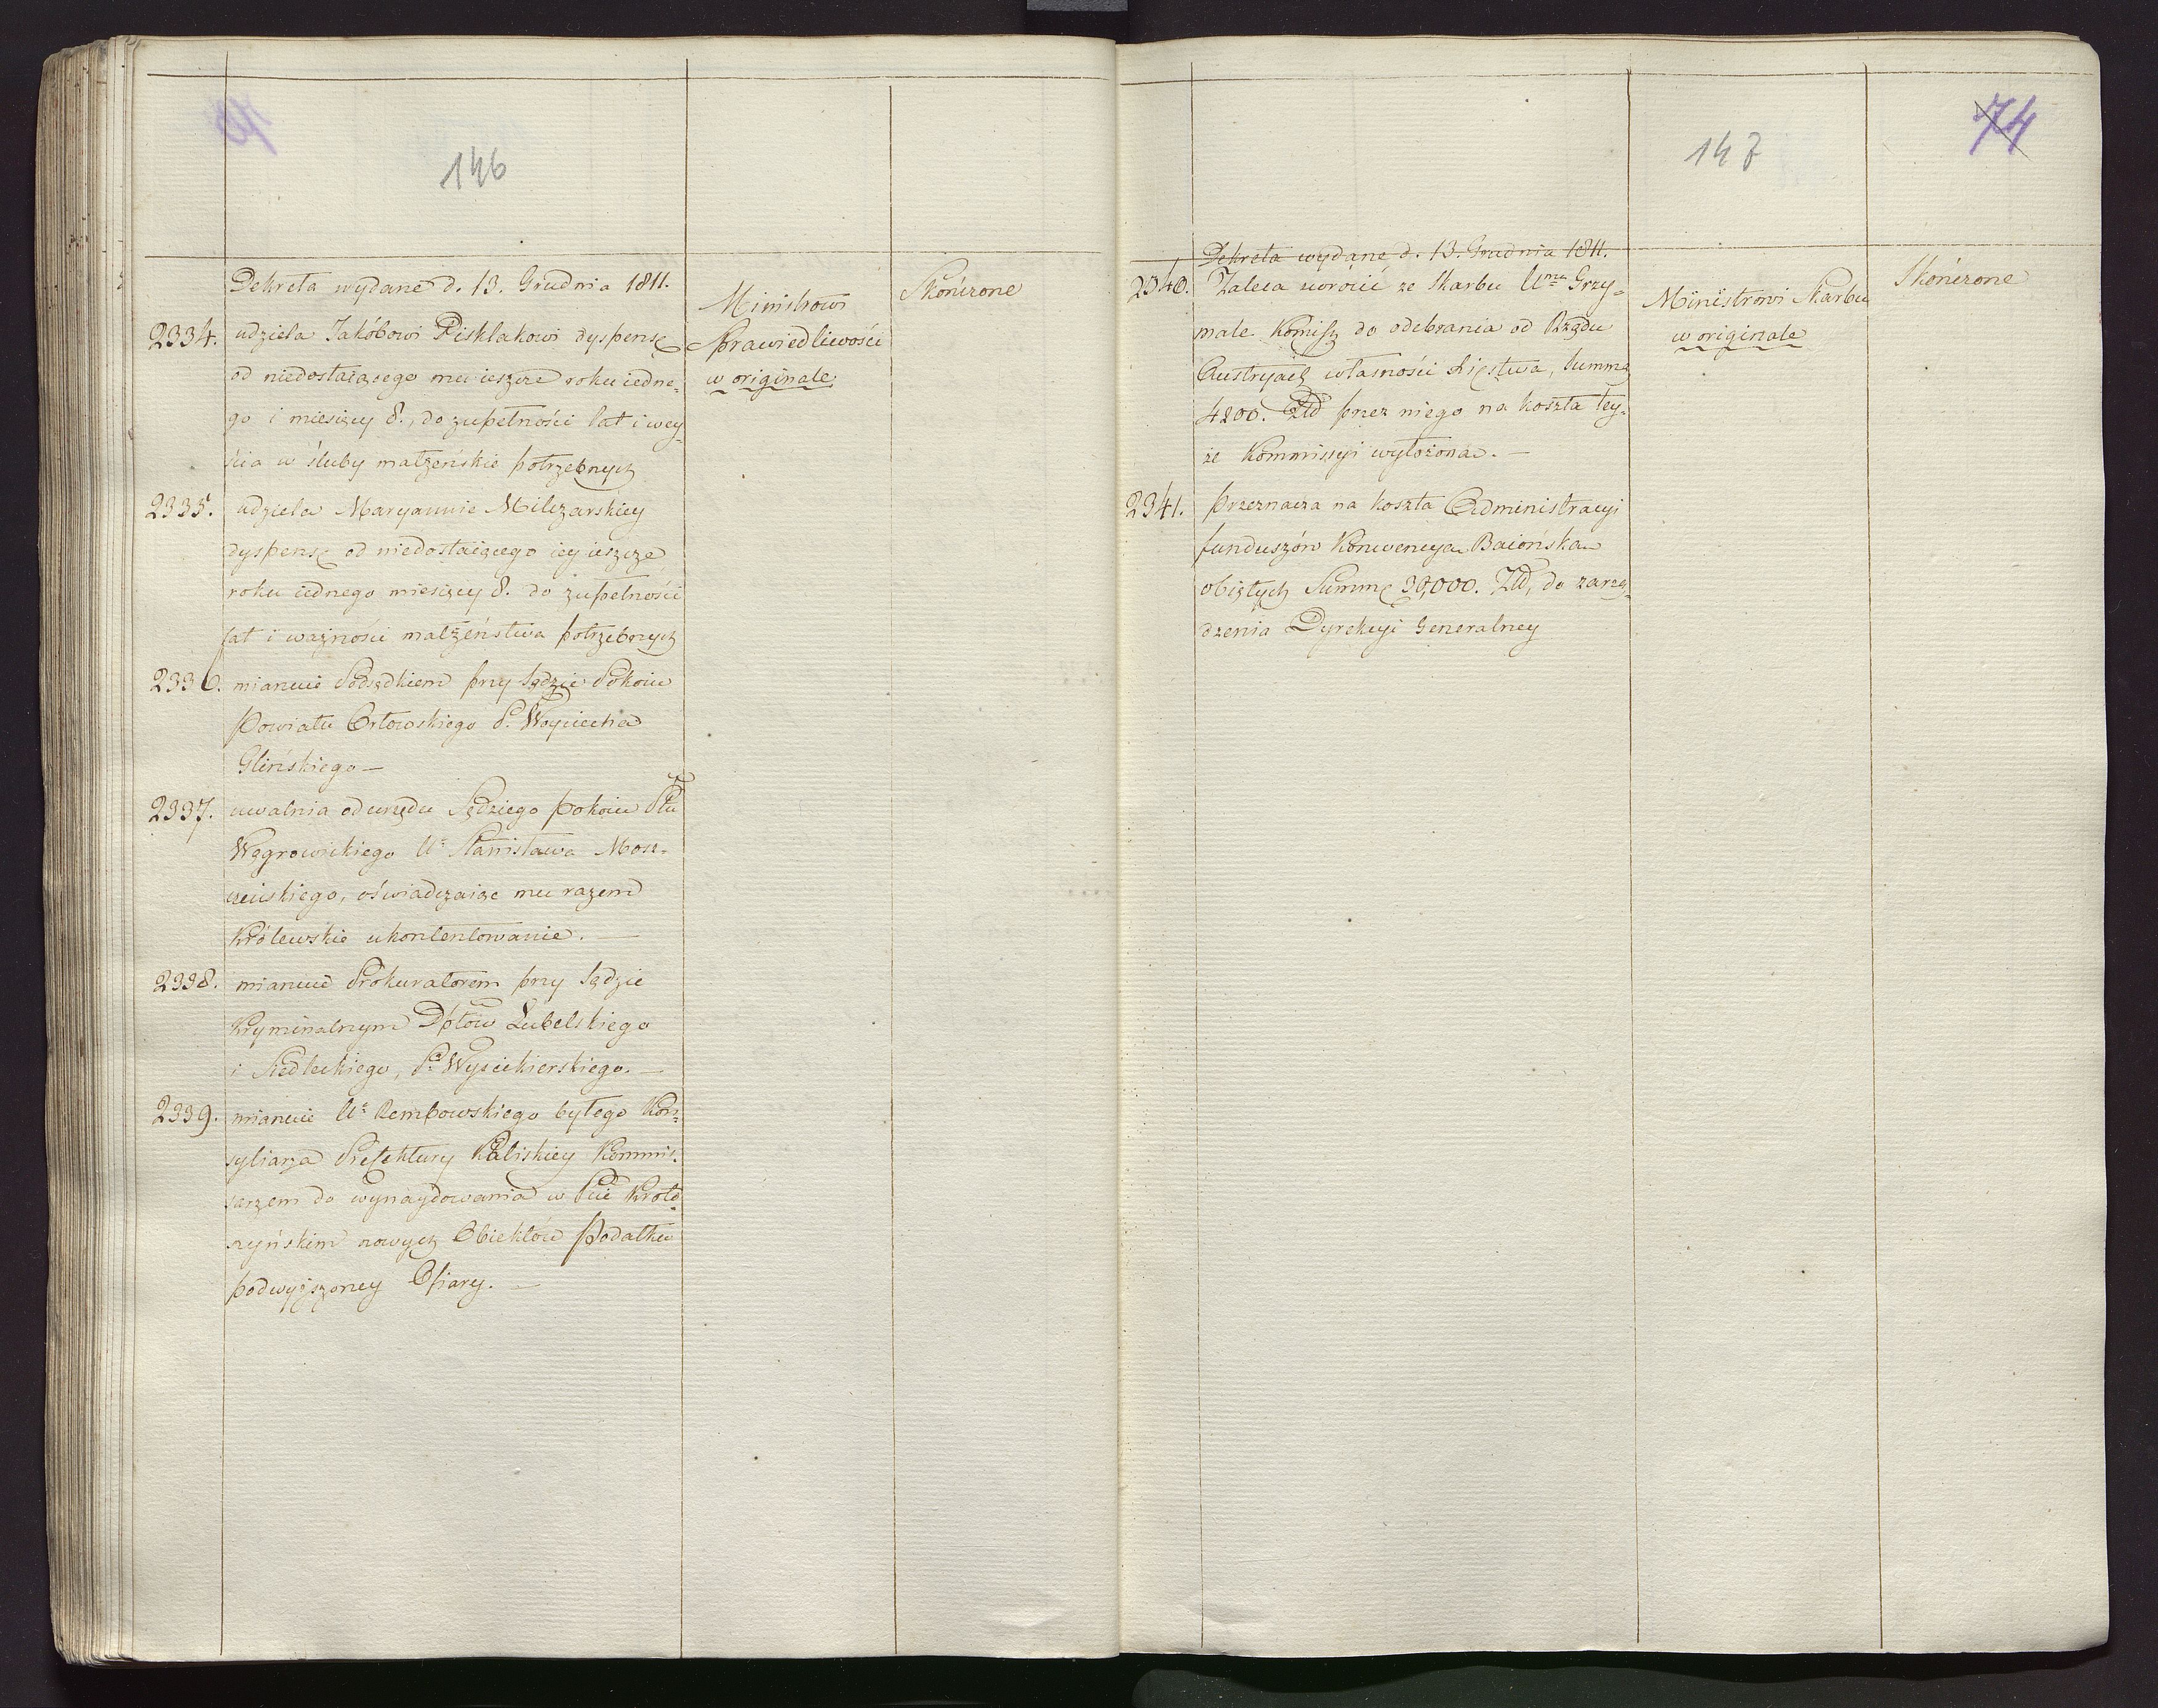 146
Dekreta wydane d. 13. Grudnia 1811.
2334. udziela Jakóbowi Pisklakowi dyspensę
od niedostaiącego mu ieszcze roku iedne-
go i miesięcy 8., do zupełności lat i wey-
ścia w śluby małżeńskie potrzebnych
2335. udziela Maryannie Milczarskiey
dyspensę od niedostaiącego iey ieszcze
roku iednego miesięcy 8. do zupełności
lat i ważności małżeństwa potrzebnych
2336. mianuie Podsędkiem przy Sądzie Pokoiu
Powiatu Orłowskiego P. Woyciecha
Glińskiego —
2337. uwalnia od urzędu Sędziego pokoiu Ptu
Wągrowickiego Ur Stanisława Mosz-
czeńskiego, oświadczaiąc mu razem
Królewskie ukontentowanie. —
2338. mianuie Prokuratorem przy Sądzie
Kryminalnym Dptów Lubelskiego
i Siedleckiego, P. Wysiekierskiego. —
2339. mianuie Ur Rembowskiego byłego Kon-
syliarza Prefektury Kaliskiey Kommis-
sarzem do wynaydowania w Pcie Kroto-
szyńskim nowych Obiektów Podatku
podwyższoney Ofiary. —
Ministrowi
Sprawiedliwości
w originale.
Skończone
147
74
Dekreta wydane d. 13. Grudnia 1811.
2340. Zaleca wrócić ze Skarbu Umu Grzy-
male Komisz do odebrania od Rządu
Austryach własności Xięstwa, Summę
4200. Złł przez niego na koszta tey-
że Kommissyi wyłożoną. —
2341. przeznacza na koszta Administracyi
funduszów Konwencyą Baiońską
obiętych Summę 30,000. Złł, do zarzą-
dzenia Dyrekcyi Generalney
Ministrowi Skarbu
w originale
Skończone